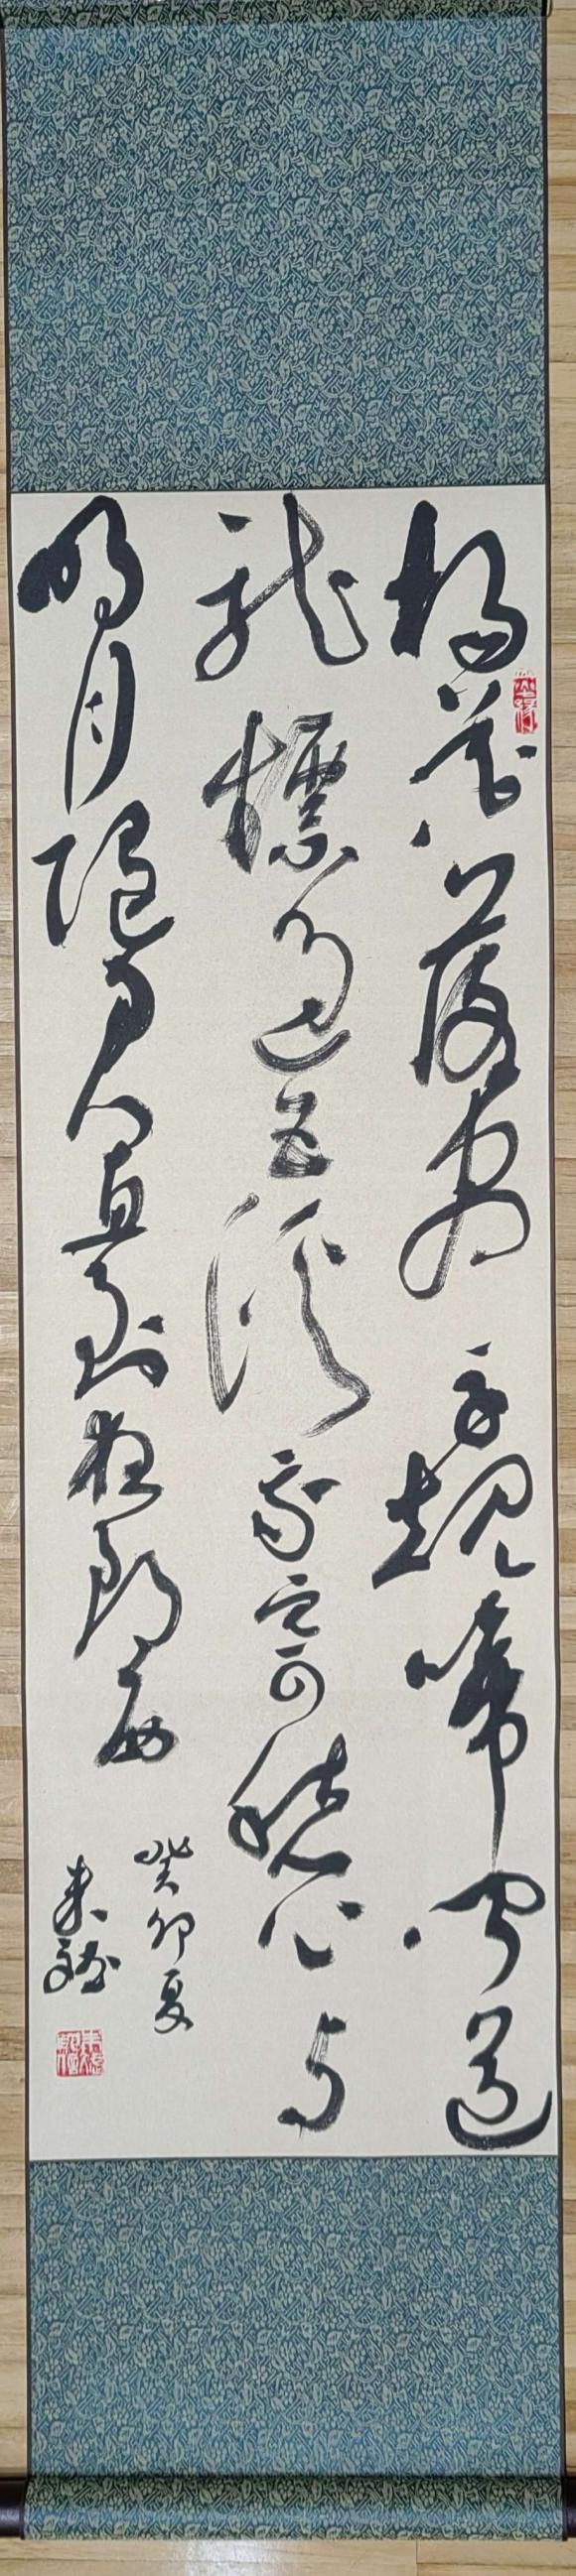 楊花落盡子規啼聞道
龍標過五溪我寄愁心与
明月隨君直到夜郎西
癸卯夏